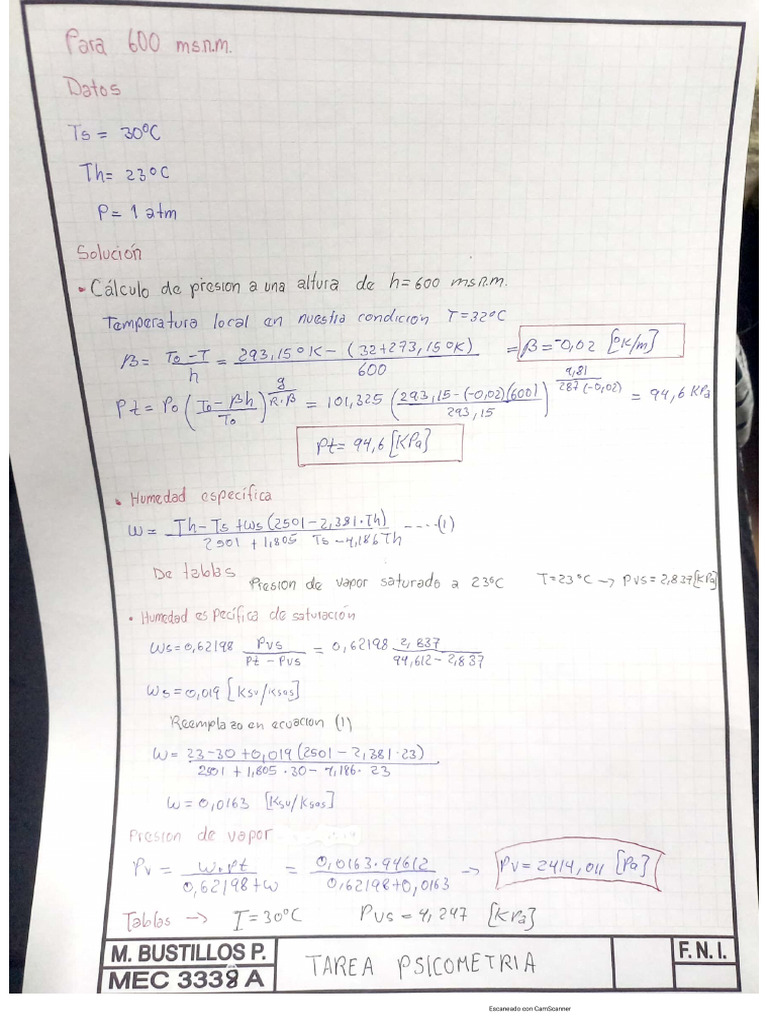 Para 600 msn.m.
Datos
Ts = 30°C
Th= 23°C
P= 1 atm
Solución
• Cálculo de presion a una altura de h=600 msn.m.
Temperatura local en nuestra condicion T=32°C
β = (To-T)/h = (293,15°K - (32+273,15°K))/600 = β=-0,02 [°K/m]
Pt = Po ((To-βh)/To)^(g/(R.β)) = 101,325 ((293,15-(-0,02)(600))/293,15)^(9,81/(287(-0,02))) = 94,6 KPa
Pt= 94,6 [KPa]
• Humedad especifica
ω= (Th-Ts+ωs(2501-2,381.Th))/(2501+1,805 Ts-4,186Th) ----(1)
De tablas Presion de vapor saturado a 23°C T=23°C → Pvs=2,837[KPa]
• Humedad especifica de saturación
ωs=0,62198 Pvs/(Pt-Pvs) = 0,62198 2,837/(94,612-2,837)
ωs=0,019 [Ksv/Ksas]
Reemplazo en ecuacion (1)
ω= (23-30+0,019(2501-2,381.23))/(2501+1,805.30-4,186.23)
ω=0,0163 [Ksv/Ksas]
Presion de vapor
Pv = ω.Pt/(0,62198+ω) = 0,0163.94612/(0,62198+0,0163) → Pv=2414,011 [Pa]
Tablas → T=30°C Pvs=4,247 [KPa]
M. BUSTILLOS P.
MEC 3338 A
TAREA PSICOMETRIA
F.N.I.
Escaneado con CamScanner